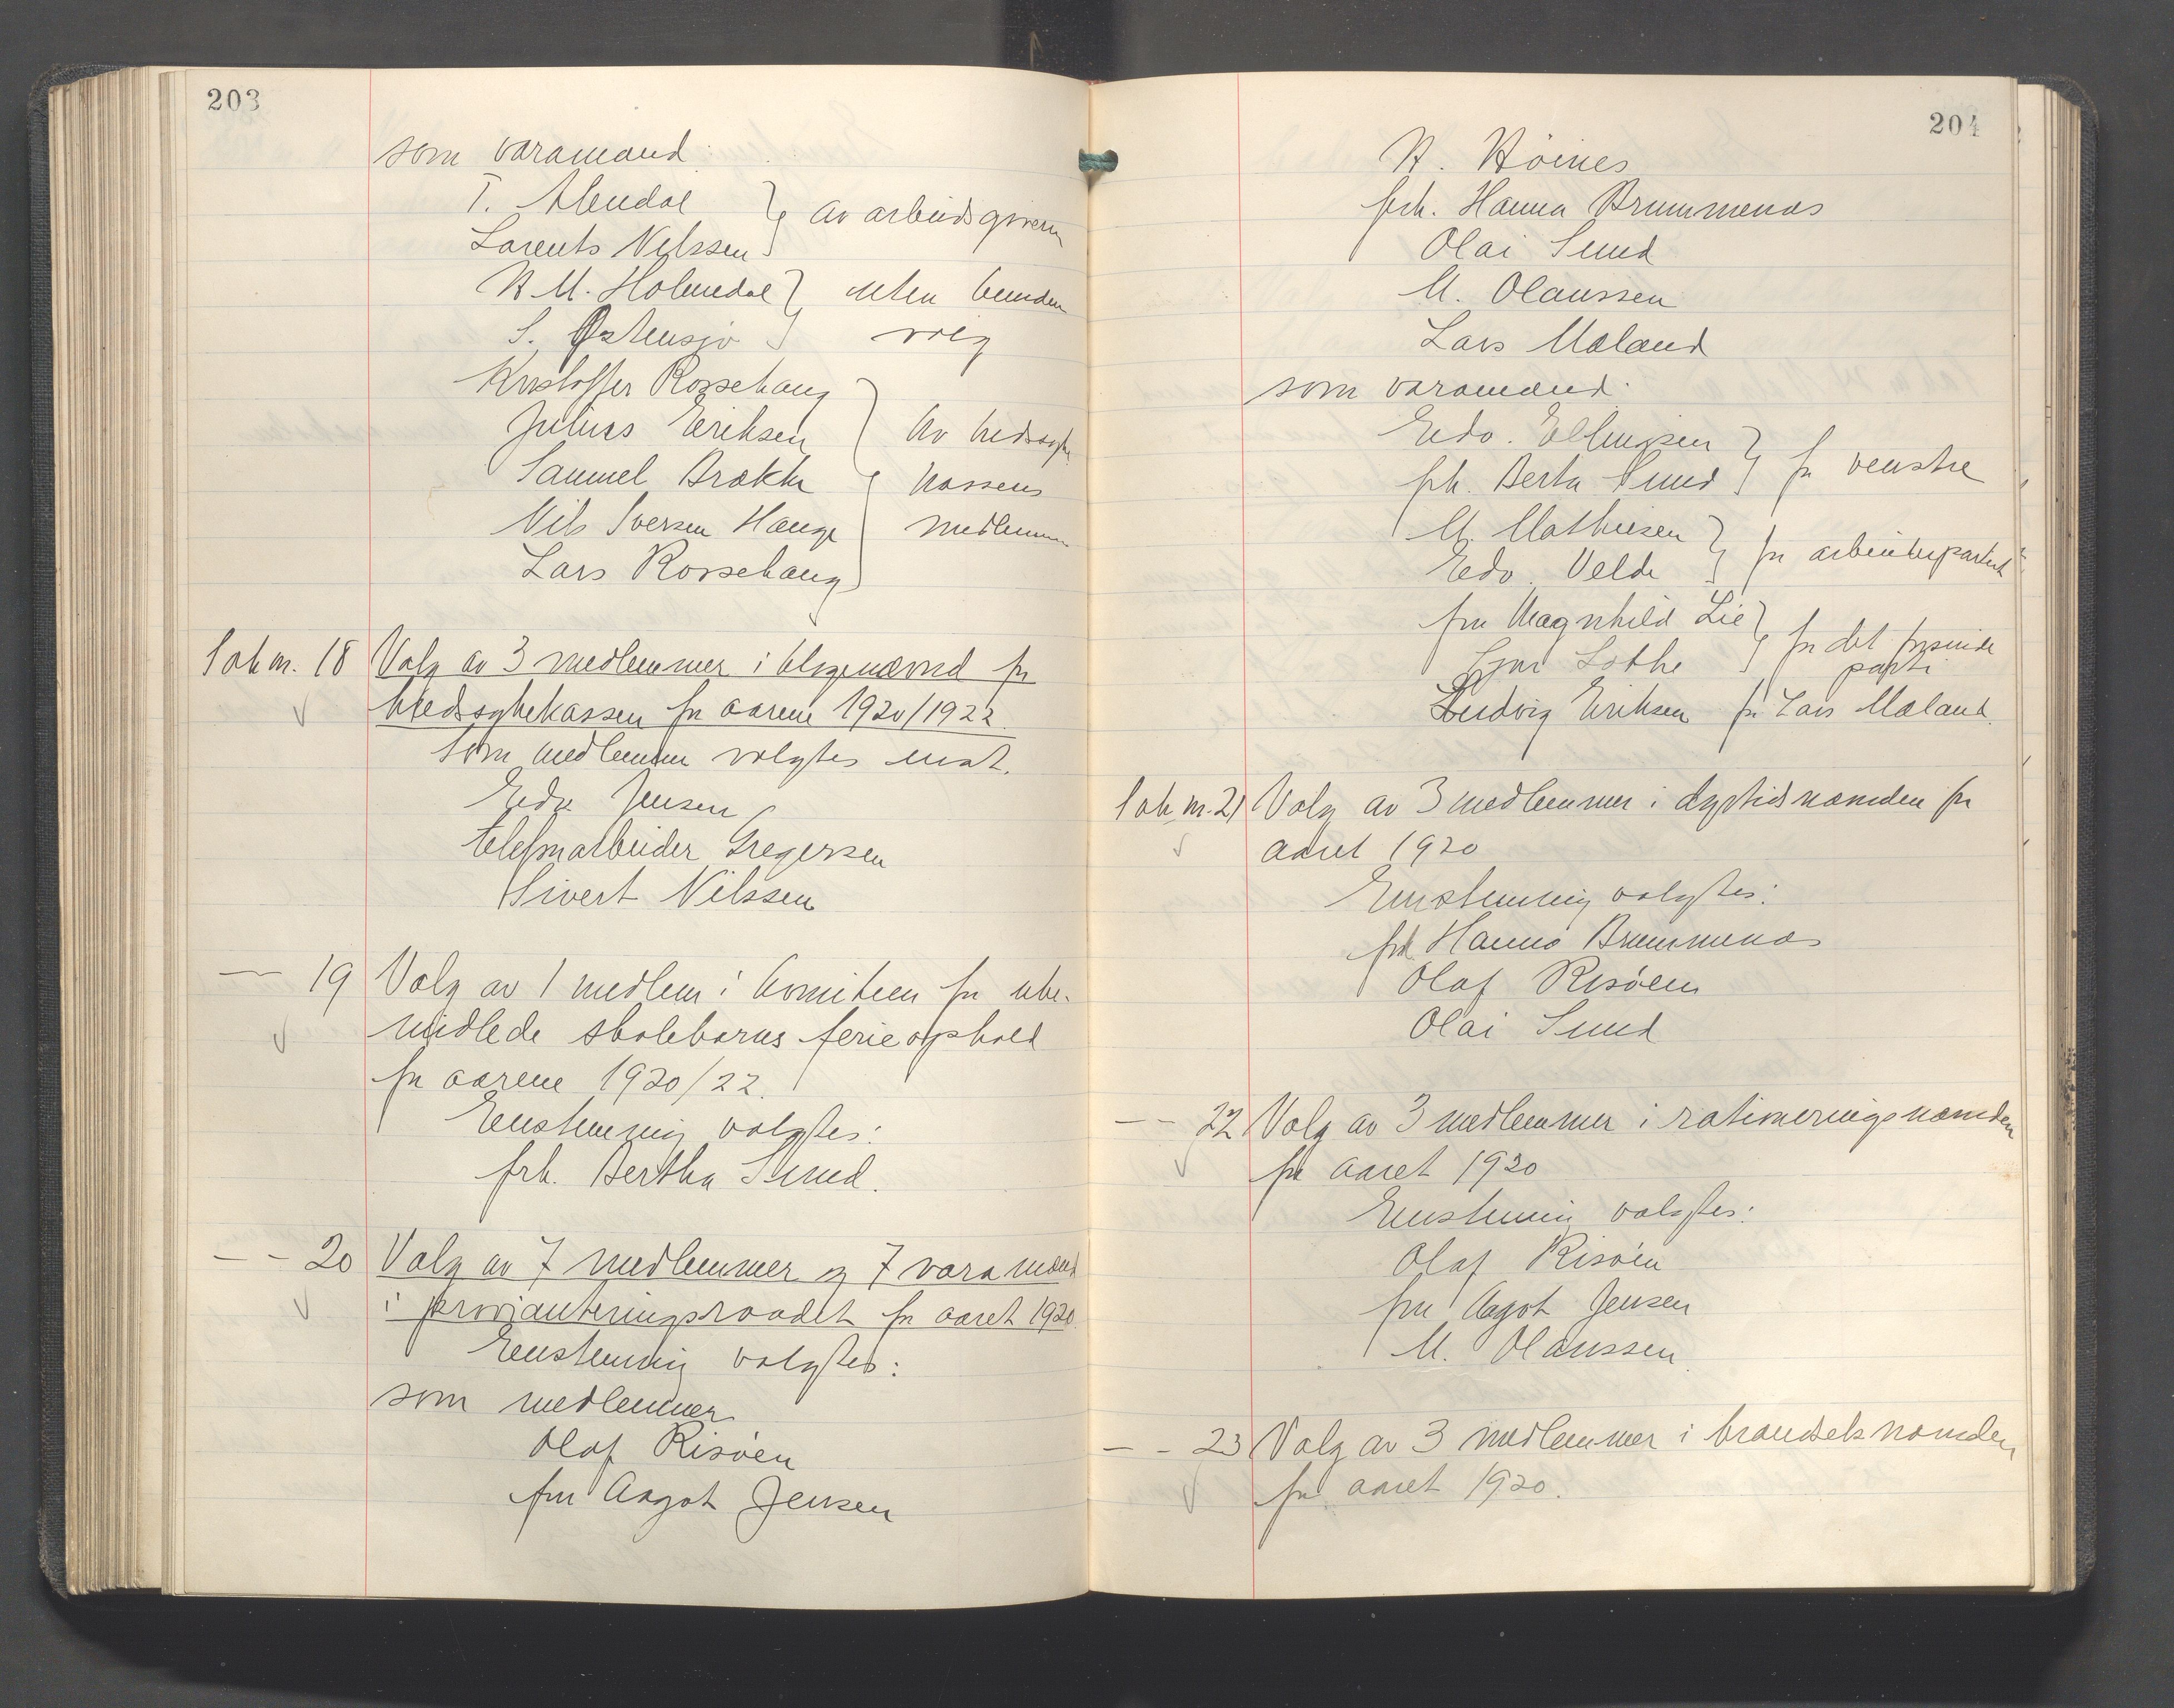 203
som varamænd:
T. Alendal } av arbeidsgivern
Lorents Nilssen
N. M. Holmedal } uten bunden
S. Østensjø valg
Kristoffer Rossehaug
Julius Eriksen } Av kredssyke
Samuel Brekke kassens
Nils Iversen Hauge medlemmer
Lars Rossehaug
Sak nr. 18 Valg av 3 medlemmer i klagenævnd for
kredssykekassen for aarene 1920/1922.
Som medlemmer valgtes enst.
Edv. Jensen
telefonarbeider Gregersen
Sivert Nilssen
— 19 Valg av 1 medlem i komiteen for ube-
midlede skolebarns ferieophold
for aarene 1920/22.
Enstemmig valgtes:
frk. Bertha Sund.
— - 20 Valg av 7 medlemmer og 7 varamænd
i provianteringsraadet for aaret 1920.
Enstemmig valgtes:
som medlemmer
Olaf Risøen
fru Aagot Jensen
204
N. Høines
frk. Hanna Brummenæs
Olai Sund
M. Olaussen
Lars Mæland
som varamænd:
Edv. Ellingsen } for venstre
frk. Berta Sund
M. Mathiesen } for arbeiderpartiet
Edv. Velde
fru Magnhild Lie } for det frisinde
Lothe parti
Ludvig Eriksen for Lars Mæland.
Sak nr. 21 Valg av 3 medlemmer i dyrtidsnævnden for
aaret 1920
Enstemmig valgtes:
frk. Hanna Brummenæs
Olaf Risøen
Olai Sund
— - 22 Valg av 3 medlemmer i rationeringsnævnden
for aaret 1920
Enstemmig valgtes:
Olaf Risøen
fru Aagot Jensen
M. Olaussen
— - 23 Valg av 3 medlemmer i brændselsnævnden
for aaret 1920.